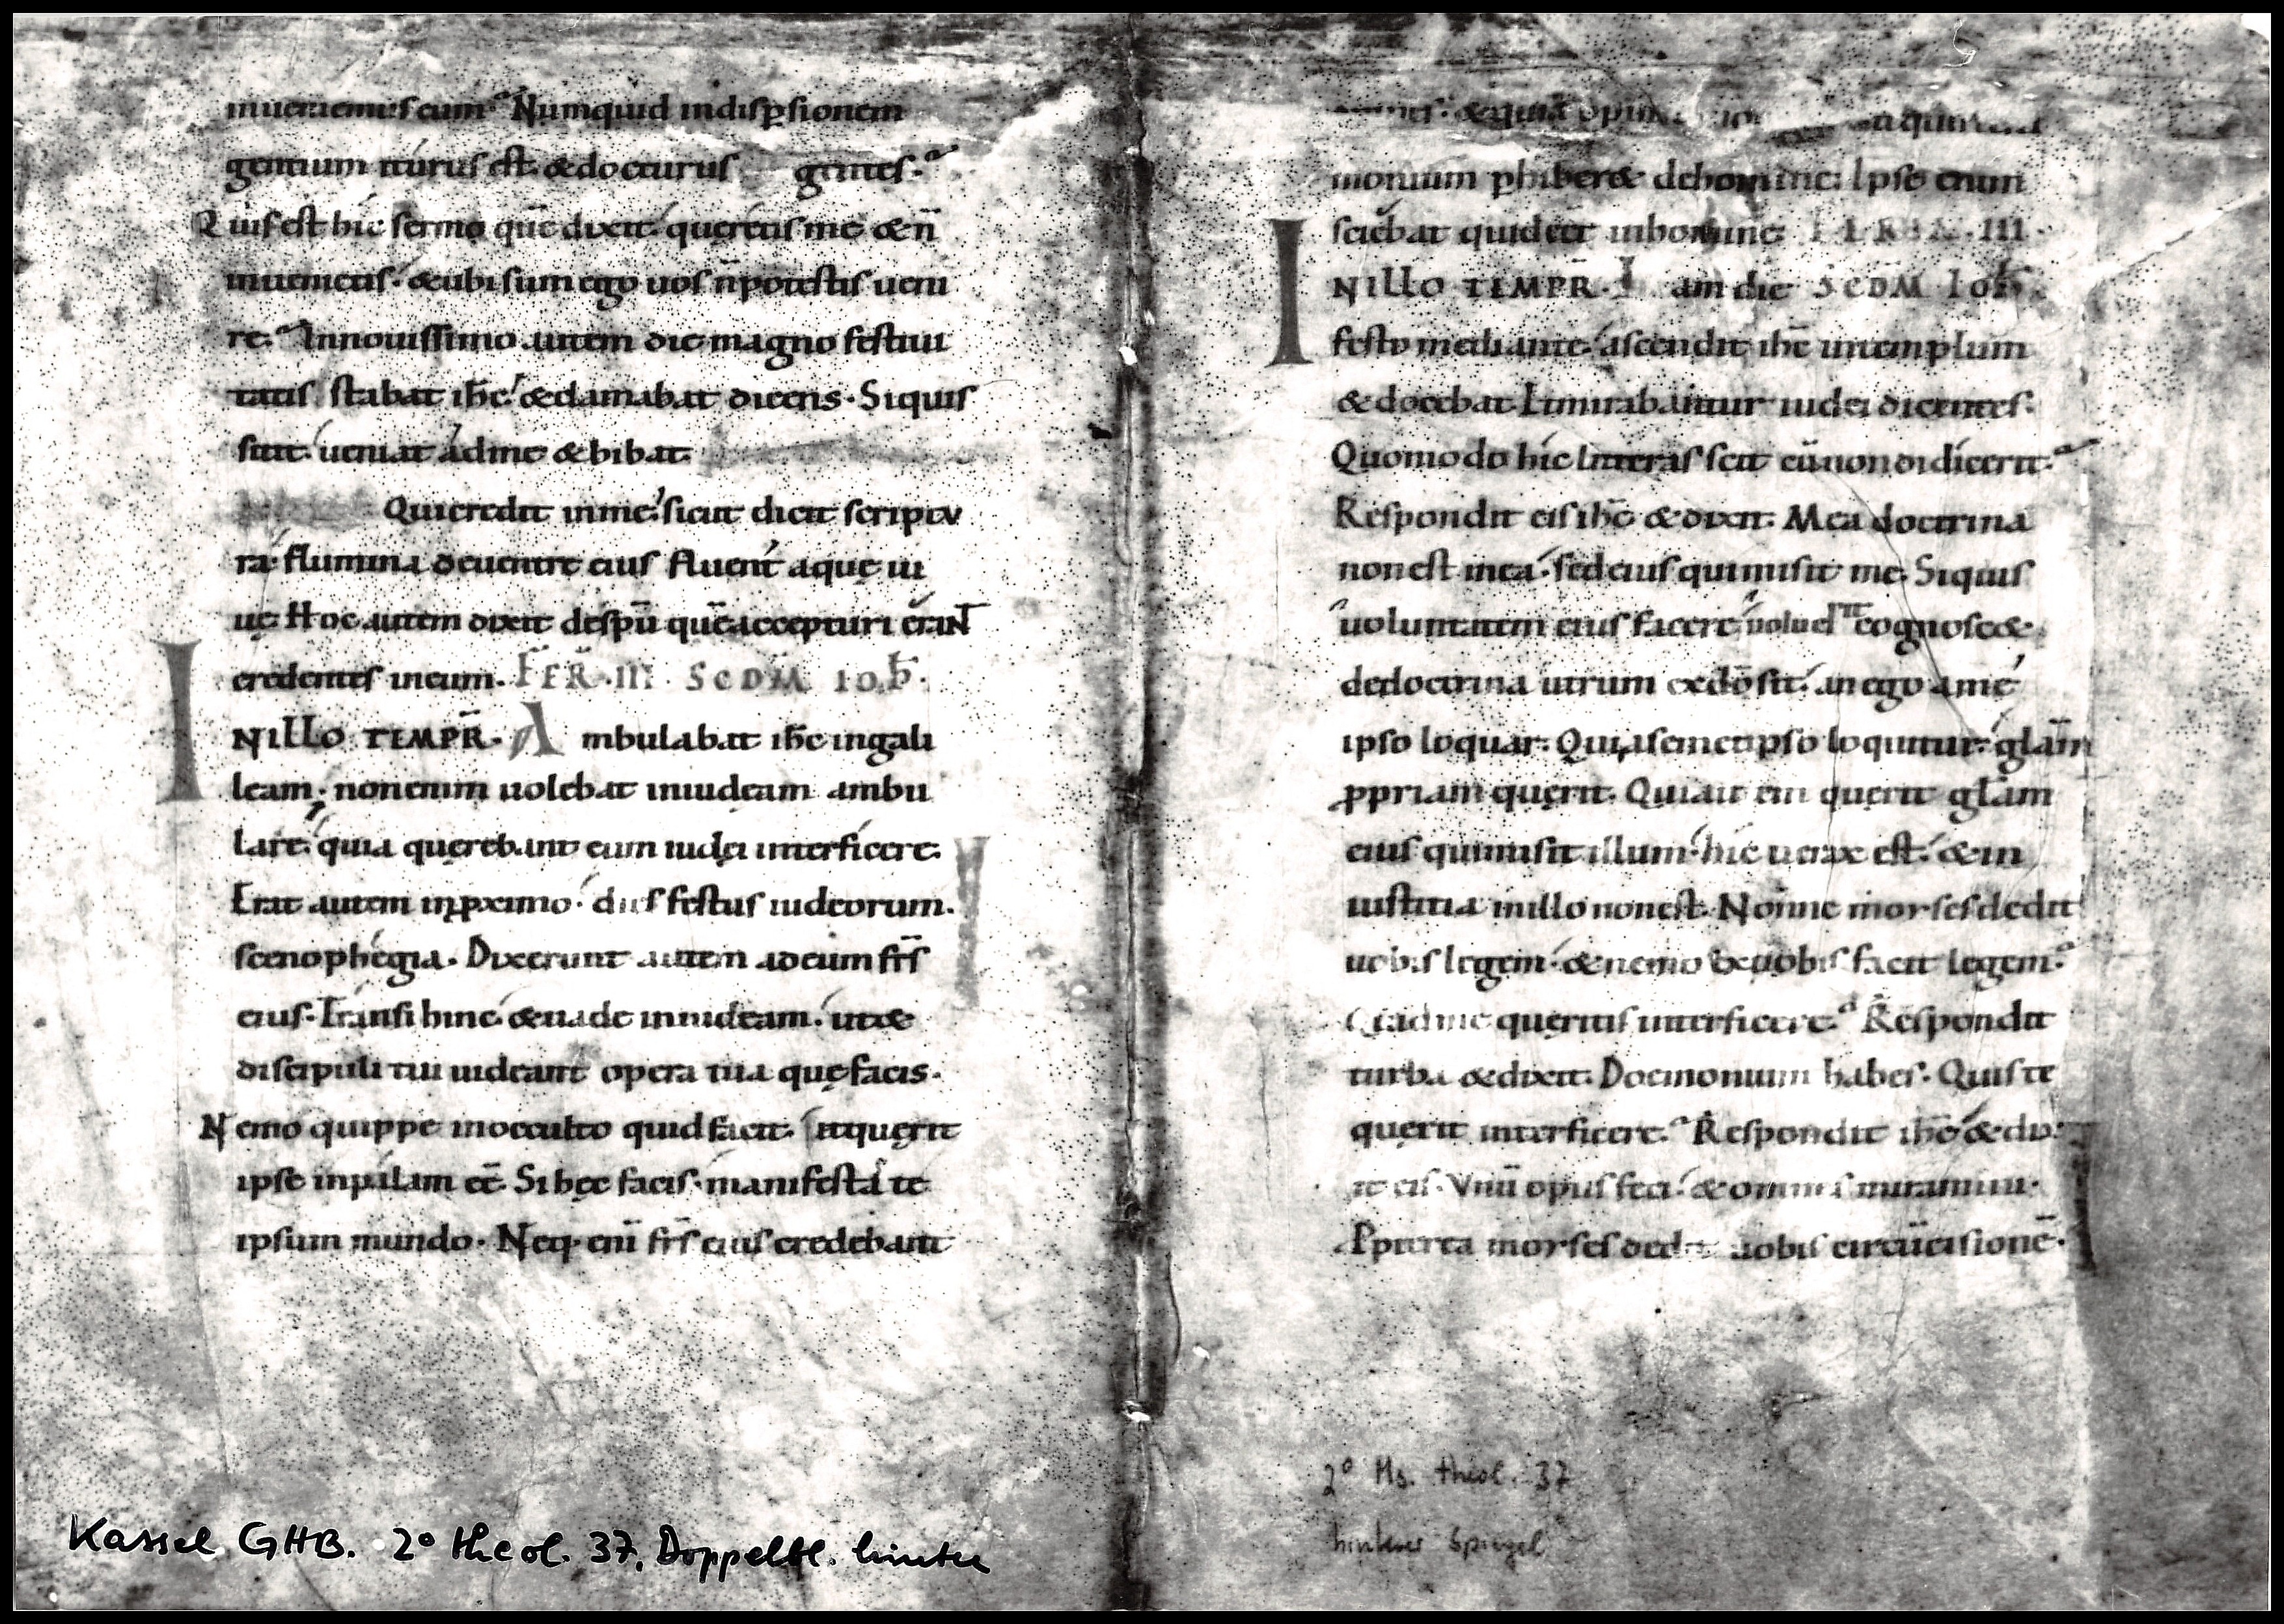 inueniemus eum? Numquid in disp̱sionem
gentium iturus est. & docturus gentes.
Quis est hic sermo quē dixit. queretis me & n̄
inuenietis. & ubi sum ego uos n̄ potestis ueni
re? In nouissimo autem die magno festiui
tatis stabat ihc̄ & clamabat dicens. Siquis
sitit. ueniat ad me & bibat.
Qui credit in me. sicut dicit scriptu
ra. flumina deuentre eius fluent aquę ui
uę. Hoc autem dixit de sp̄u quē accepturi erant
credentes in eum. FER̄. III. SCDM̄ IOH̄.
IN ILLO TEMPR̄. Ambulabat ihc̄ in gali
leam. non enim uolebat in iudęam ambu
lare. quia querebant eum iudęi interficere.
Erat autem in p̱ximo. dies festus iudeorum.
scenophegia. Dixerunt autem ad eum frs̄
eius. Transi hinc. & uade in iudęam. ut &
discipuli tui uideant opera tua quę facis.
Nemo quippe in occulto quid facit. & querit
ipse in palam eē. Si hęc facis. manifesta te
ipsum mundo. Neq. eni frs̄ eius credebant
monium p̱hiber& de homine. Ipse enim
sciebat quid eēt in homine. FER̄ III.
IN ILLO TEMPR̄. Iam die SCDM̄ IOH̄.
festo mediante. ascendit ihc̄ in templum
& docebat. Et mirabantur iudei dicentes.
Quomodo hic litteras scit cū non didicerit?
Respondit eis ihc̄ & dixit. Mea doctrina
non est mea. sed eius qui misit me. Siquis
uoluntatem eius facere uoluerit cognosc&
de doctrina utrum ex dō sit. an ego a me
ipso loquar. Qui a semetipso loquitur. glam̄
p̱priam querit. Qui aut em querit glam̄
eius qui misit illum. hic uerax est. & in
iustitia in illo non est. Nonne moyses dedit
uobis legem. & nemo ex uobis facit legem?
Quid me queritis interficere? Respondit
turba & dixit. Doemonium habes. Quis te
querit interficere? Respondit ihc̄ & dix
it eis. Vnū opus feci. & omnes miramini.
P̱pterea moyses dedit uobis circūcisionē.
2° Ms. theol. 37
hinterer Spiegel
Kassel GHB. 2° theol. 37, Doppelbl. hinten